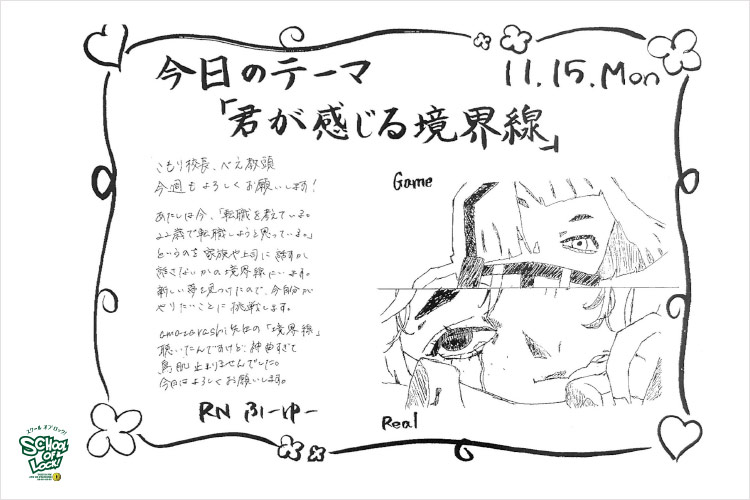 今日のテーマ
11.15.Mon
「君が感じる境界線」
こもり校長、ぺえ教頭
今週もよろしくお願いします!
あたしは今、「転職を考えている。
22歳で転職しようと思っている。」
というのを家族や上司に話すか
話さないかの境界線にいます。
新しい夢を見つけたので、今自分が
やりたいことに挑戦します。
amazarashi先生の「境界線」
聴いたんですけど、神曲すぎて
鳥肌止まりませんでした。
今日はよろしくお願いします。
RN ふーゆー
Game
Real
スクール オブ ロック!
SCHOOL
OF
LOCK!